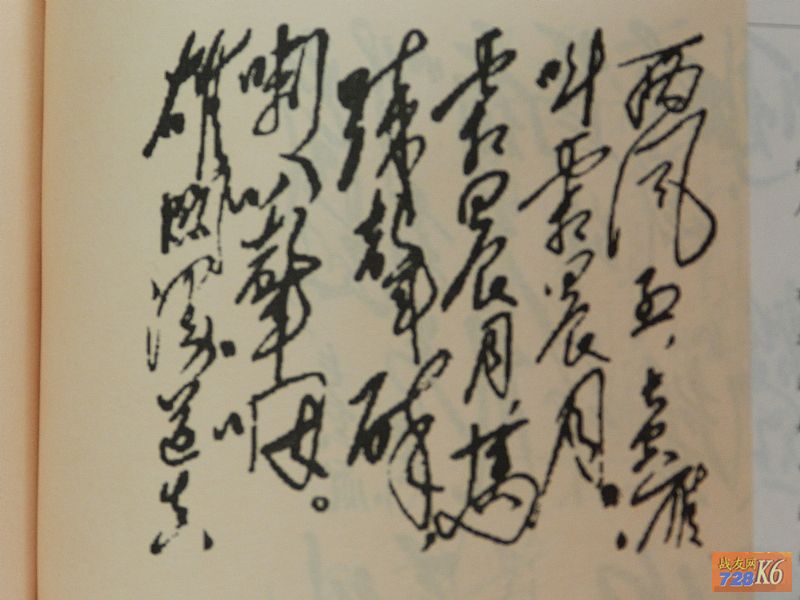 西风烈,长空雁
叫霜晨月。
霜晨月,馬
蹄聲碎,
喇叭聲咽。
雄關漫道真
战友网
728 K6